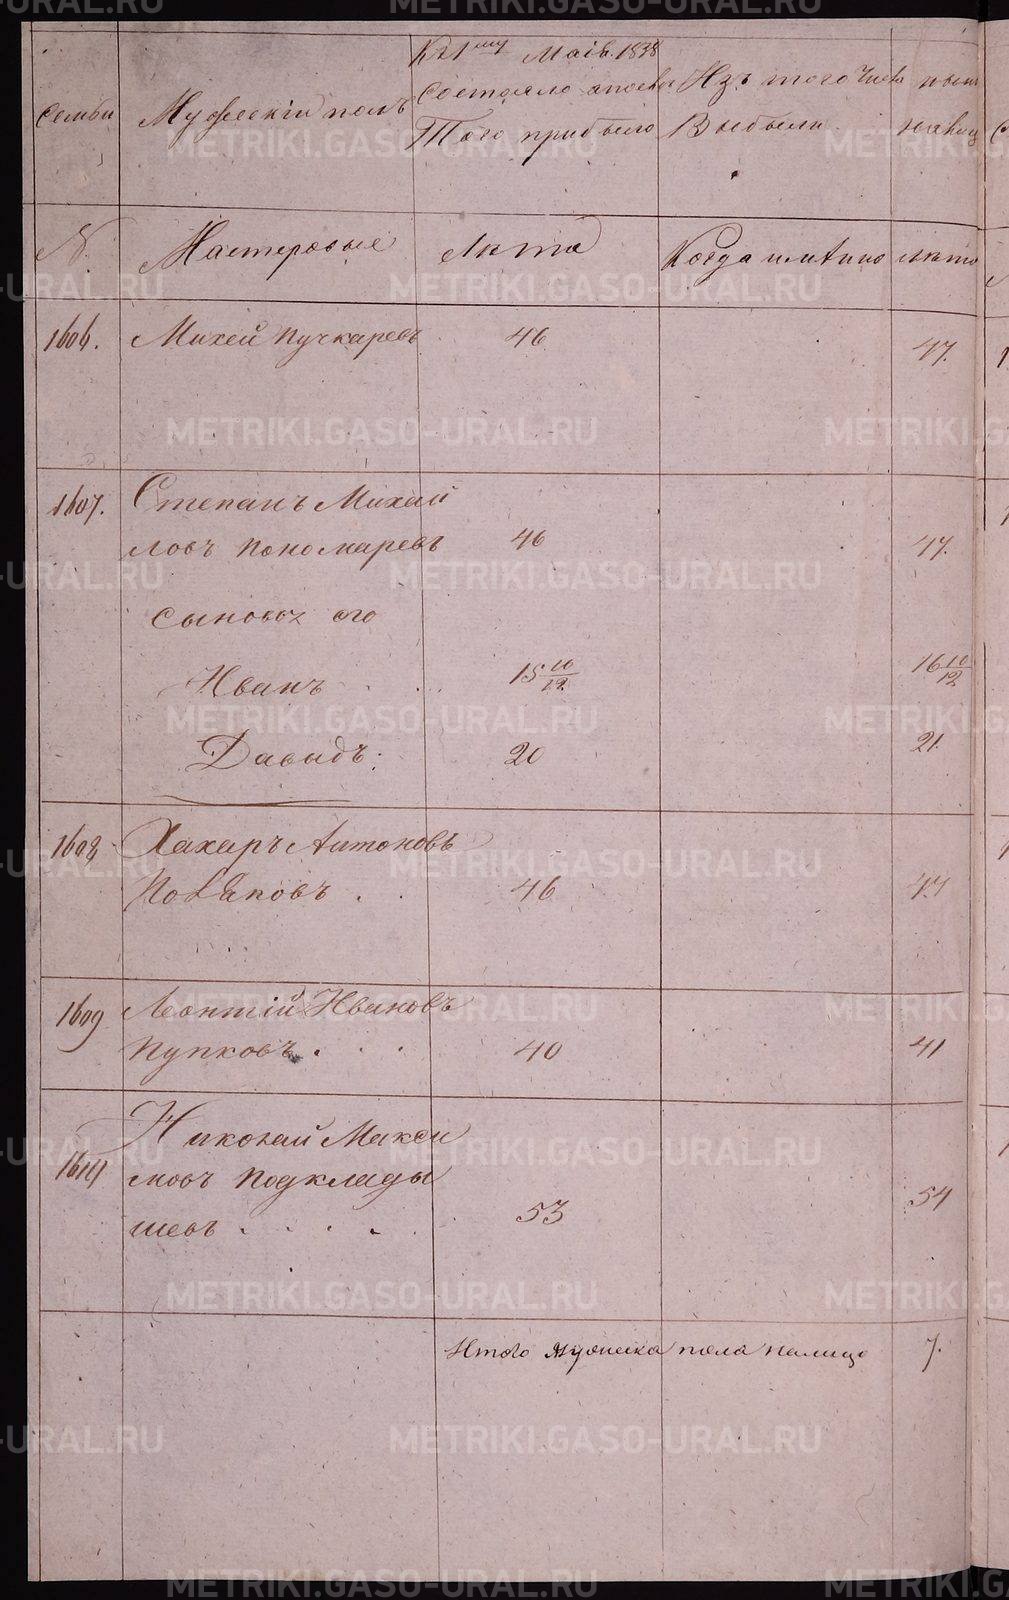 METRIKI.GASO-URAL.RU
семьи
Мужескiй полъ
Къ 1му Маiя 1838
состояло а после
Того прибыло
Изъ того числа
Выбыли
ныне
налицо
№
Мастеровые
Лета
Когда именно
лета
1606. Михей Пучкаревъ 46 47.
1607. Степанъ Михай
ловъ Пономаревъ 46 47.
Сыновья его
Иванъ 15 10/12 16 10/12
Давыдъ 20 21.
1608 Захаръ Антоновъ
Потаповъ 46 47
1609 Леонтiй Ивановъ
Пупковъ 40 41
1610 Николай Макси
мовъ Подклады
шевъ 53 54
Итого мужеска пола налицо 7.